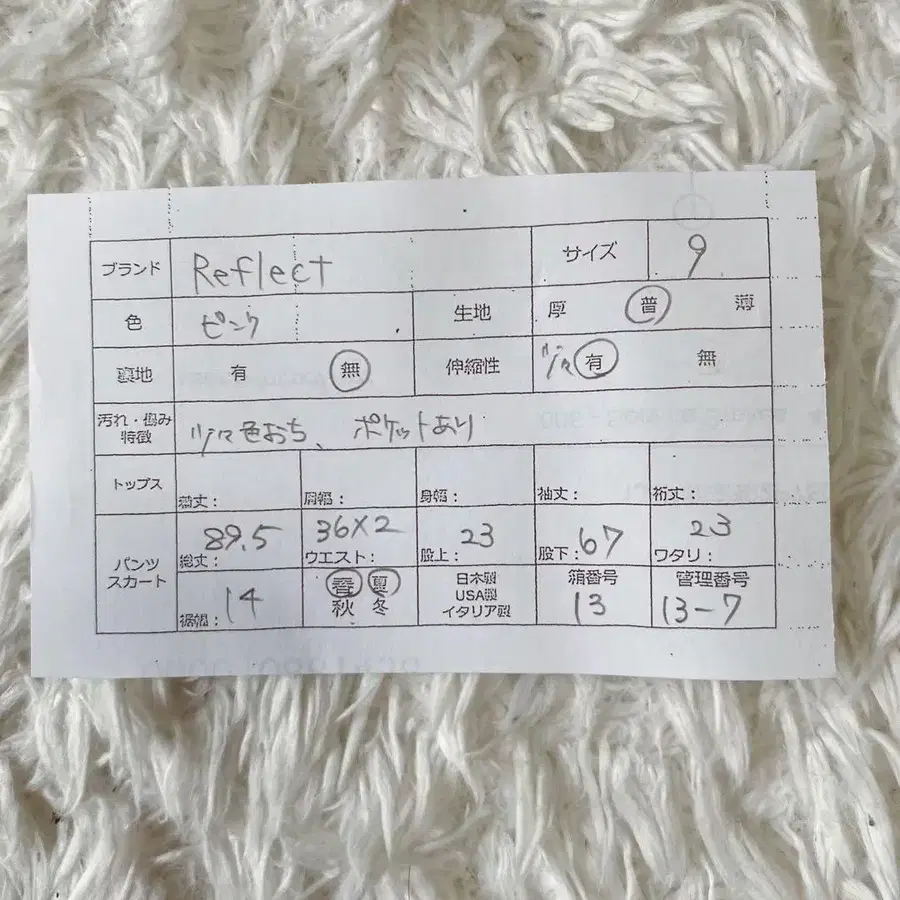 ブランド Reflect サイズ 9
色 ピンク 生地 厚 普 薄
裏地 有 無 伸縮性 少々 有 無
汚れ・傷み
特徴 少々色おち、ポケットあり
トップス 着丈: 肩幅: 身幅: 袖丈: 裄丈:
パンツ
スカート
総丈: 89.5 ウエスト: 36×2 股上: 23 股下: 67 ワタリ: 23
裾幅: 14 春 夏 秋 冬
日本製
USA製
イタリア製
箱番号 13 管理番号 13-7